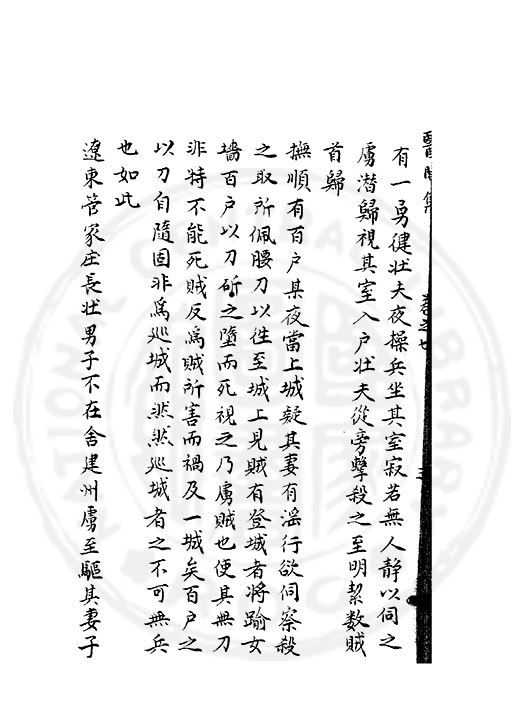 醫閭集 卷之七 三
有一勇健壯夫夜操兵坐其室寂若無人靜以伺之
虜潛歸視其室入户壯夫從旁擊殺之至明絜數賊
首歸
撫順有百户某夜當上城疑其妻有滛行欲伺察殺
之取所佩腰刀以徃至城上見賊有登城者將踰女
墻百户以刀斫之墮而死視之乃虜賊也使其無刀
非特不能死賊反爲賊所害而禍及一城矣百户之
以刀自隨固非爲廵城而然然廵城者之不可無兵
也如此
遼東管家庄長壯男子不在舍建州虜至驅其妻子